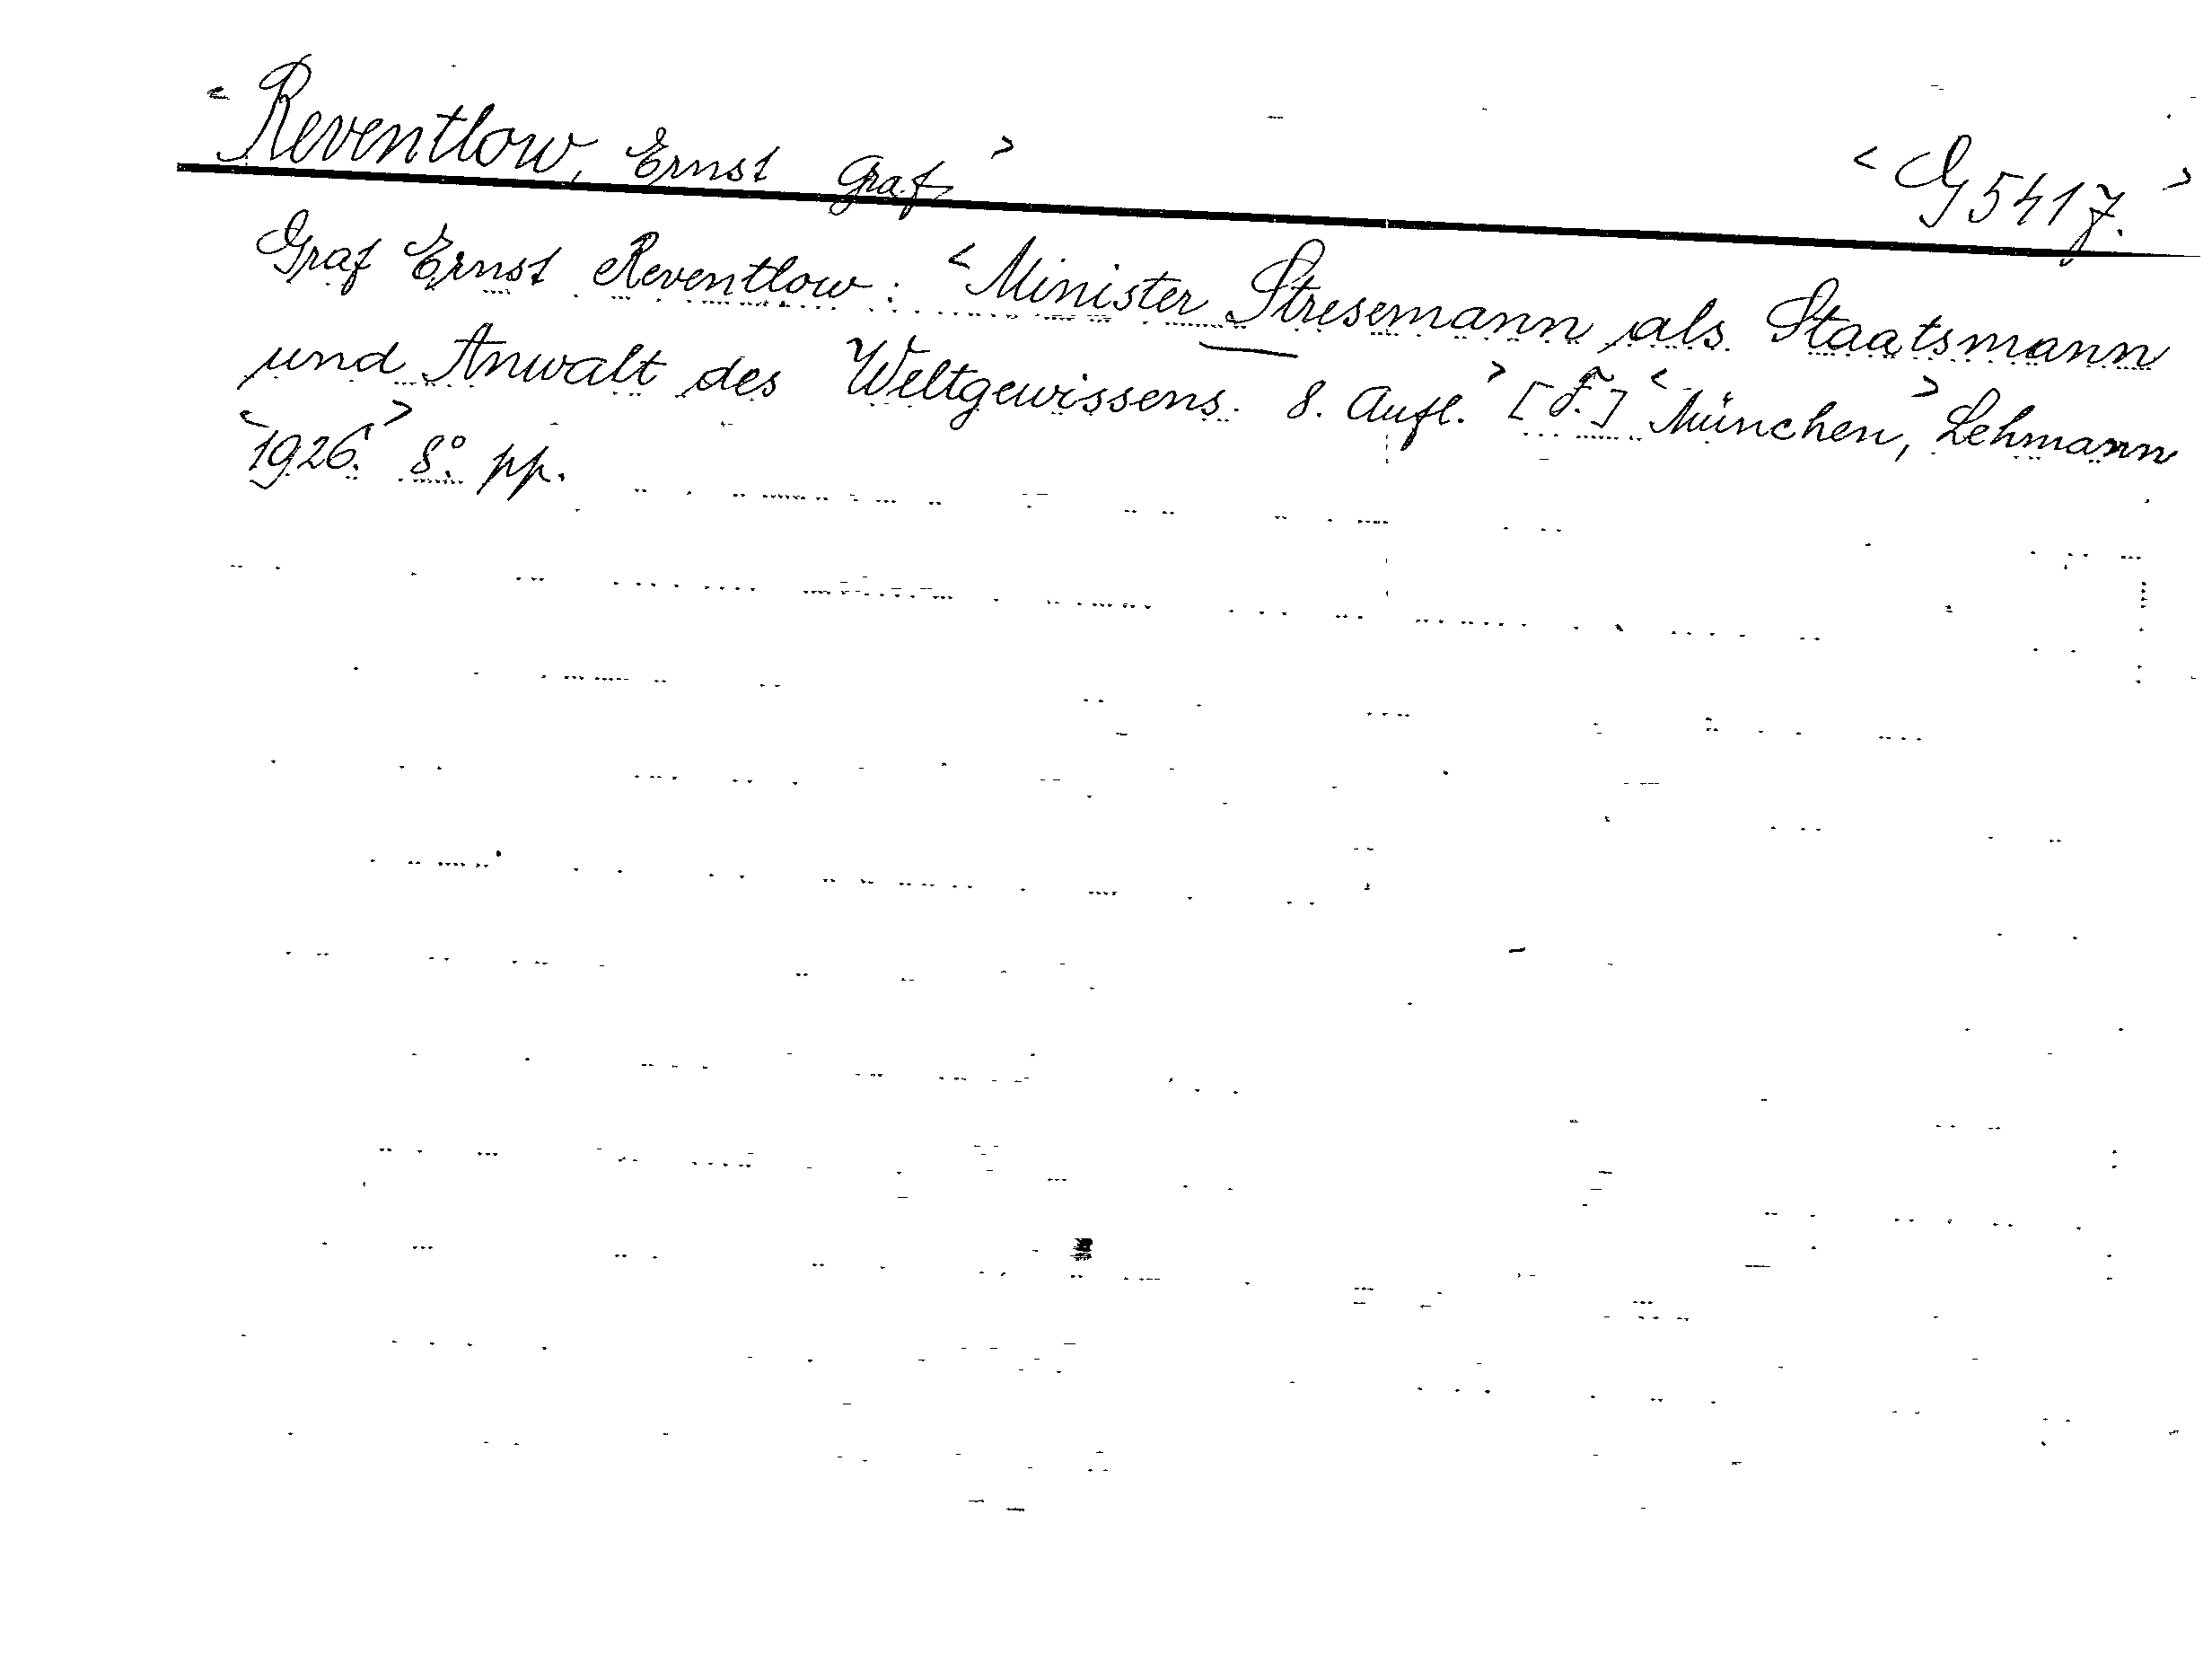 <Reventlow, Ernst Graf> <G 5417.>
Graf Ernst Reventlow: <Minister Stresemann als Staatsmann
und Anwalt des Weltgewissens. 8. Aufl.> [F.] <München,> Lehmann
<1926.> 8°. pp.